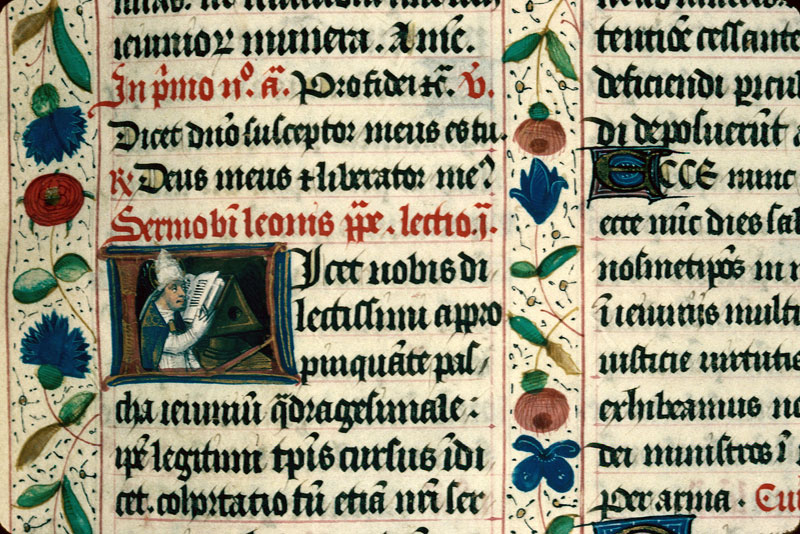 ieiunior munera. Ame.
In p̄mo n°. a͞. Pro fidei ⁊c̄. v̄.
Dicet dn̄o susceptor meus es tu.
℟ Deus meus ⁊ liberator me⁹
Sermo bt̄i leonis pp̄e. lectio. j.
Licet nobis di
lectissimi appro
pinquāte pas/
cha ieiuniū q̄dragesimale:
ip̄e legitimi tp̄is cursus īdi
cet. cohortatio tn̄ etiā nr̄i ser
tentiōe cessante
deficiendi
di deposuerūt a
ECCE nunc
ecce nūc dies sal
nosmetip̄os in
ī ieiuniis multi
iusticie virtutis
exhibeamus
dei ministros ī
per arma.